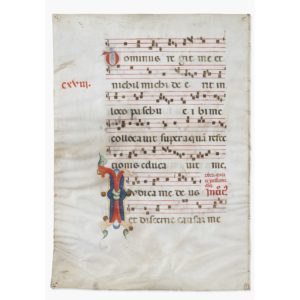 cxviii.
Dominus re git me et
nichil michi de e rit in
loco paschu e i bi me
colloca uit super aqua refec
tionis educa uit me.
Iudica me de us
et discerne causam me